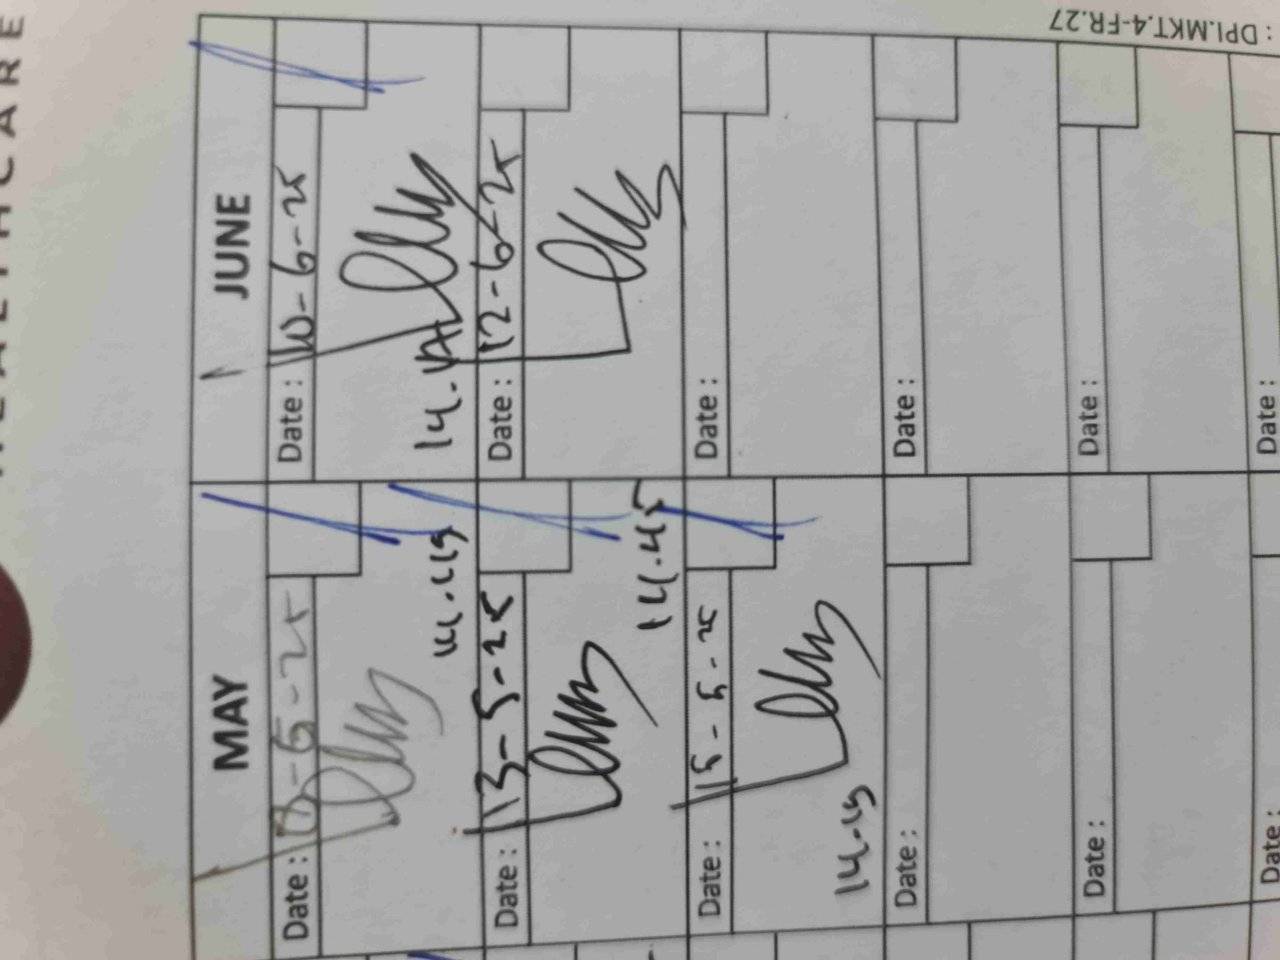 HEALTHCARE
: DPI.MKT.4-FR.27
MAY
JUNE
Date : 8-5-25
Date : 10-6-25
Date : 13-5-25
Date : 12-6-25
14.45
Date : 15-5-25
Date :
14-15
Date :
Date :
Date :
Date :
Date :
Date :